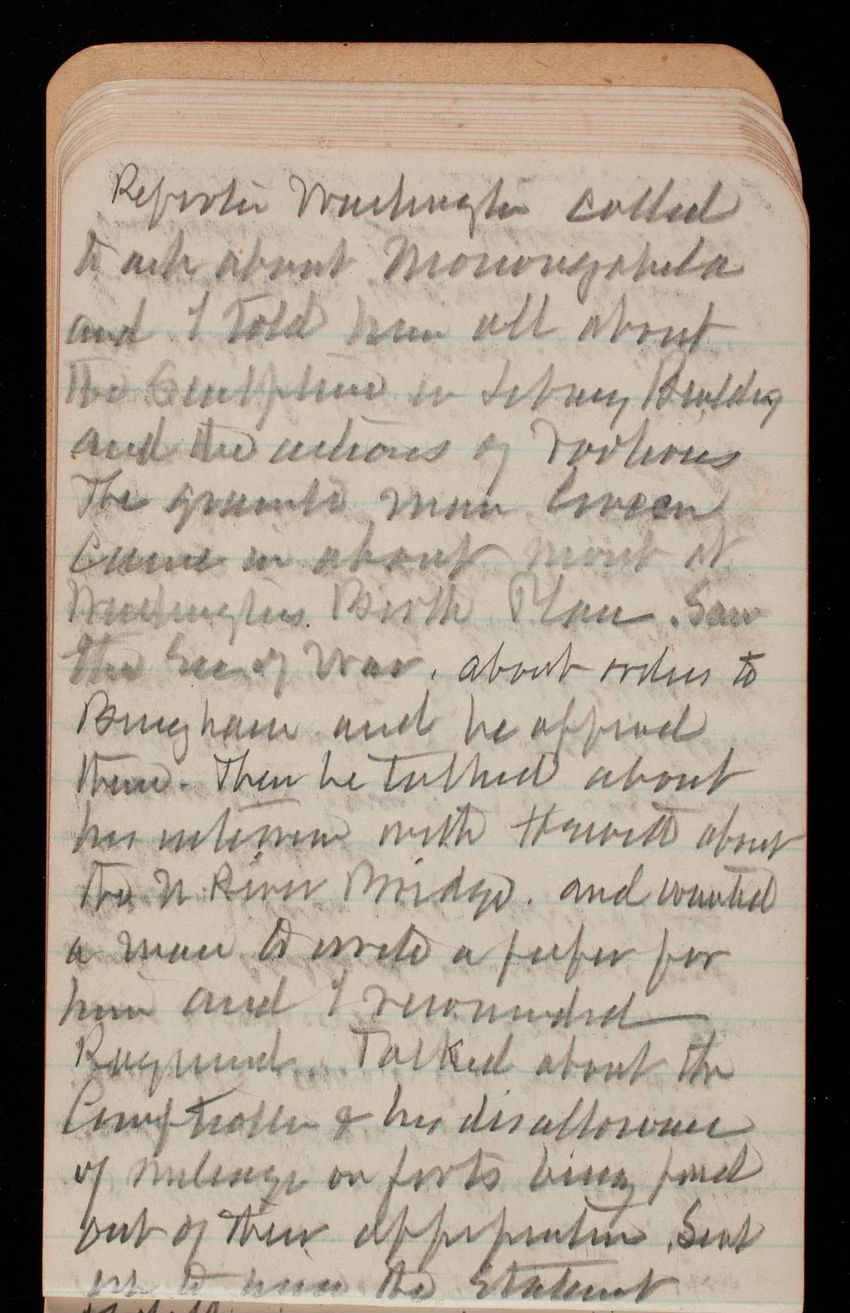 Reporter Washington called
to ask about Monongahela
and I told him all about
the Sculpture in Library Building
and the actions of
The granite man Green
came in about mont at
Washingtons Birth Place. Saw
the Sec of War. about orders to
Bingham and he approved
them. Then he talked about
his interview with Hewitt about
the N River Bridge. and wanted
a man to write a paper for
him and I recommended
Raymond. Talked about the
Comptroller & his disallowance
of mileage on forts being paid
out of their appropriation. Sent
the Statement